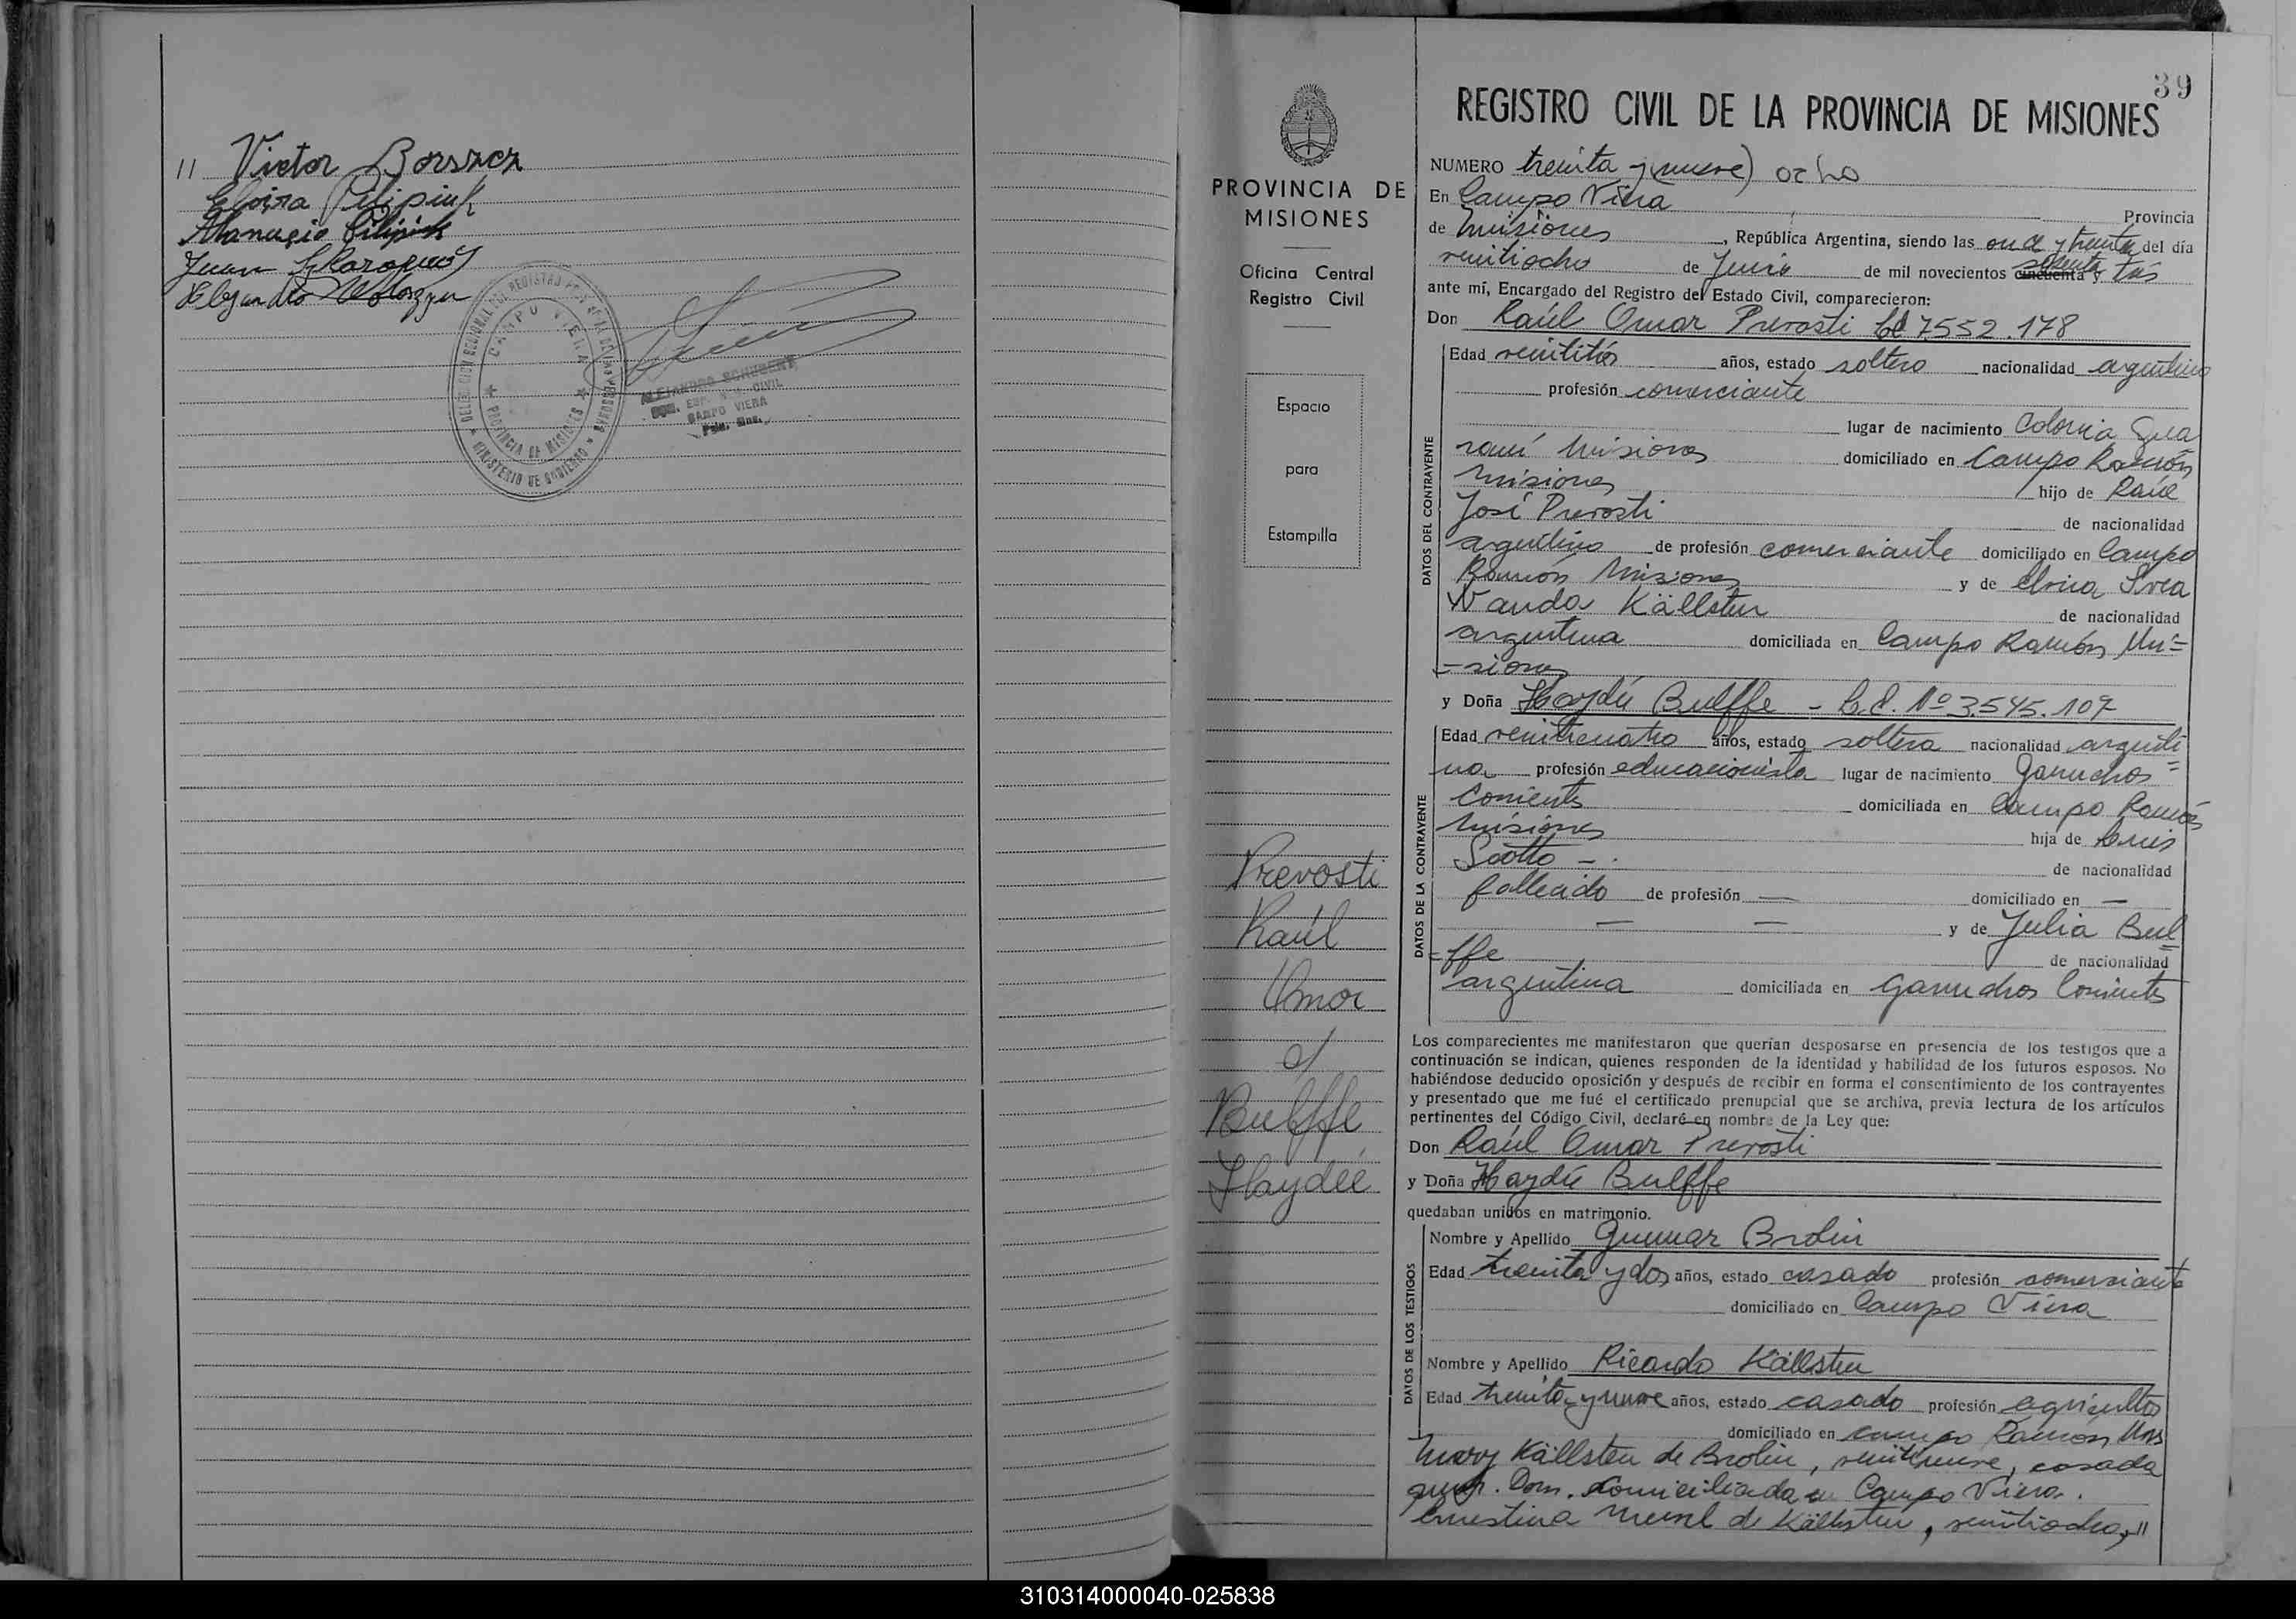 // Victor Borszcz
Elvira Pilipiuk
Atanacio Pilipiuk
Juan
Alejandro
DELEGACION REGIONAL DEL REGISTRO
CAMPO VIERA
PROVINCIA DE MISIONES
MINISTERIO DE GOBIERNO
ALEJANDRO SCHUBERT
CIVIL
CAMPO VIERA
39
REGISTRO CIVIL DE LA PROVINCIA DE MISIONES
PROVINCIA DE
MISIONES
Oficina Central
Registro Civil
Espacio
para
Estampilla
Prevosti
Raúl
Omar
y
Bulffe
Haydée
NUMERO treinta y (nueve) ocho
En Campo Viera Provincia
de Misiones, República Argentina, siendo las once y treinta del día
veintiocho de Junio de mil novecientos cincuenta y setenta tres
ante mí, Encargado del Registro del Estado Civil, comparecieron:
Don Raúl Omar Prevosti LE 7552.178
Edad veintitrés años, estado soltero nacionalidad argentino
profesión comerciante
lugar de nacimiento Colonia Gua
raní Misiones domiciliado en Campo Ramón
Misiones hijo de Raúl
José Prevosti de nacionalidad
argentino de profesión comerciante domiciliado en Campo
Ramón Misiones y de Elvira Svea
Wanda Källsten de nacionalidad
argentina domiciliada en Campo Ramón Mi=
=siones
y Doña Haydée Bulffe - L.C. Nº 3.545.107
Edad veinticuatro años, estado soltera nacionalidad argenti
na profesión educacionista lugar de nacimiento Garruchos=
Corrientes domiciliada en Campo Ramón
Misiones hija de Luis
Scotto -. de nacionalidad
fallecido de profesión — domiciliado en —
— — y de Julia Bul
=ffe de nacionalidad
argentina domiciliada en Garruchos Corrientes
Los comparecientes me manifestaron que querían desposarse en presencia de los testigos que a
continuación se indican, quienes responden de la identidad y habilidad de los futuros esposos. No
habiéndose deducido oposición y después de recibir en forma el consentimiento de los contrayentes
y presentado que me fué el certificado prenupcial que se archiva, previa lectura de los artículos
pertinentes del Código Civil, declaré en nombre de la Ley que:
Don Raúl Omar Prevosti
y Doña Haydée Bulffe
quedaban unidos en matrimonio.
Nombre y Apellido Gunnar Brolin
Edad treinta y dos años, estado casado profesión comerciante
domiciliado en Campo Viera
Nombre y Apellido Ricardo Källsten
Edad treinta y nueve años, estado casado profesión agricultor
domiciliado en campo Ramón Mns
Mary Källsten de Brolin, veintinueve, casada
queh. Dom. domiciliada en Campo Viera.
Ernestina Meinel de Källsten, veintiocho, //
DATOS DEL CONTRAYENTE
DATOS DE LA CONTRAYENTE
DATOS DE LOS TESTIGOS
310314000040-025838